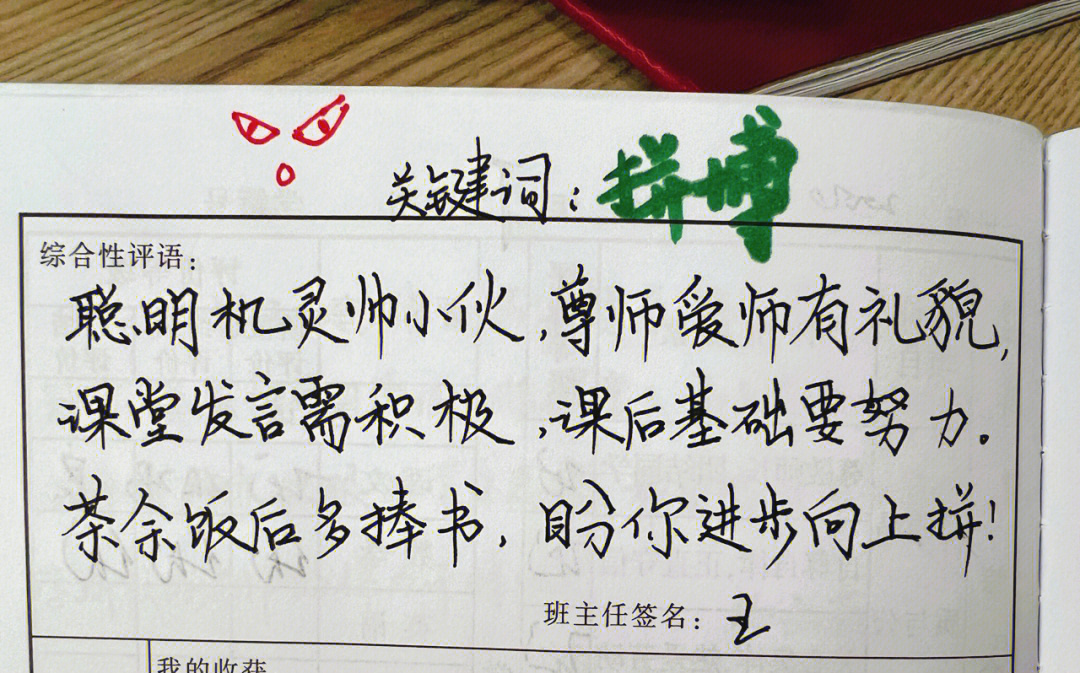 关键词：拼博
综合性评语：
聪明机灵帅小伙，尊师爱师有礼貌，
课堂发言需积极，课后基础要努力。
茶余饭后多捧书，盼你进步向上拼！
班主任签名：王
我的收获